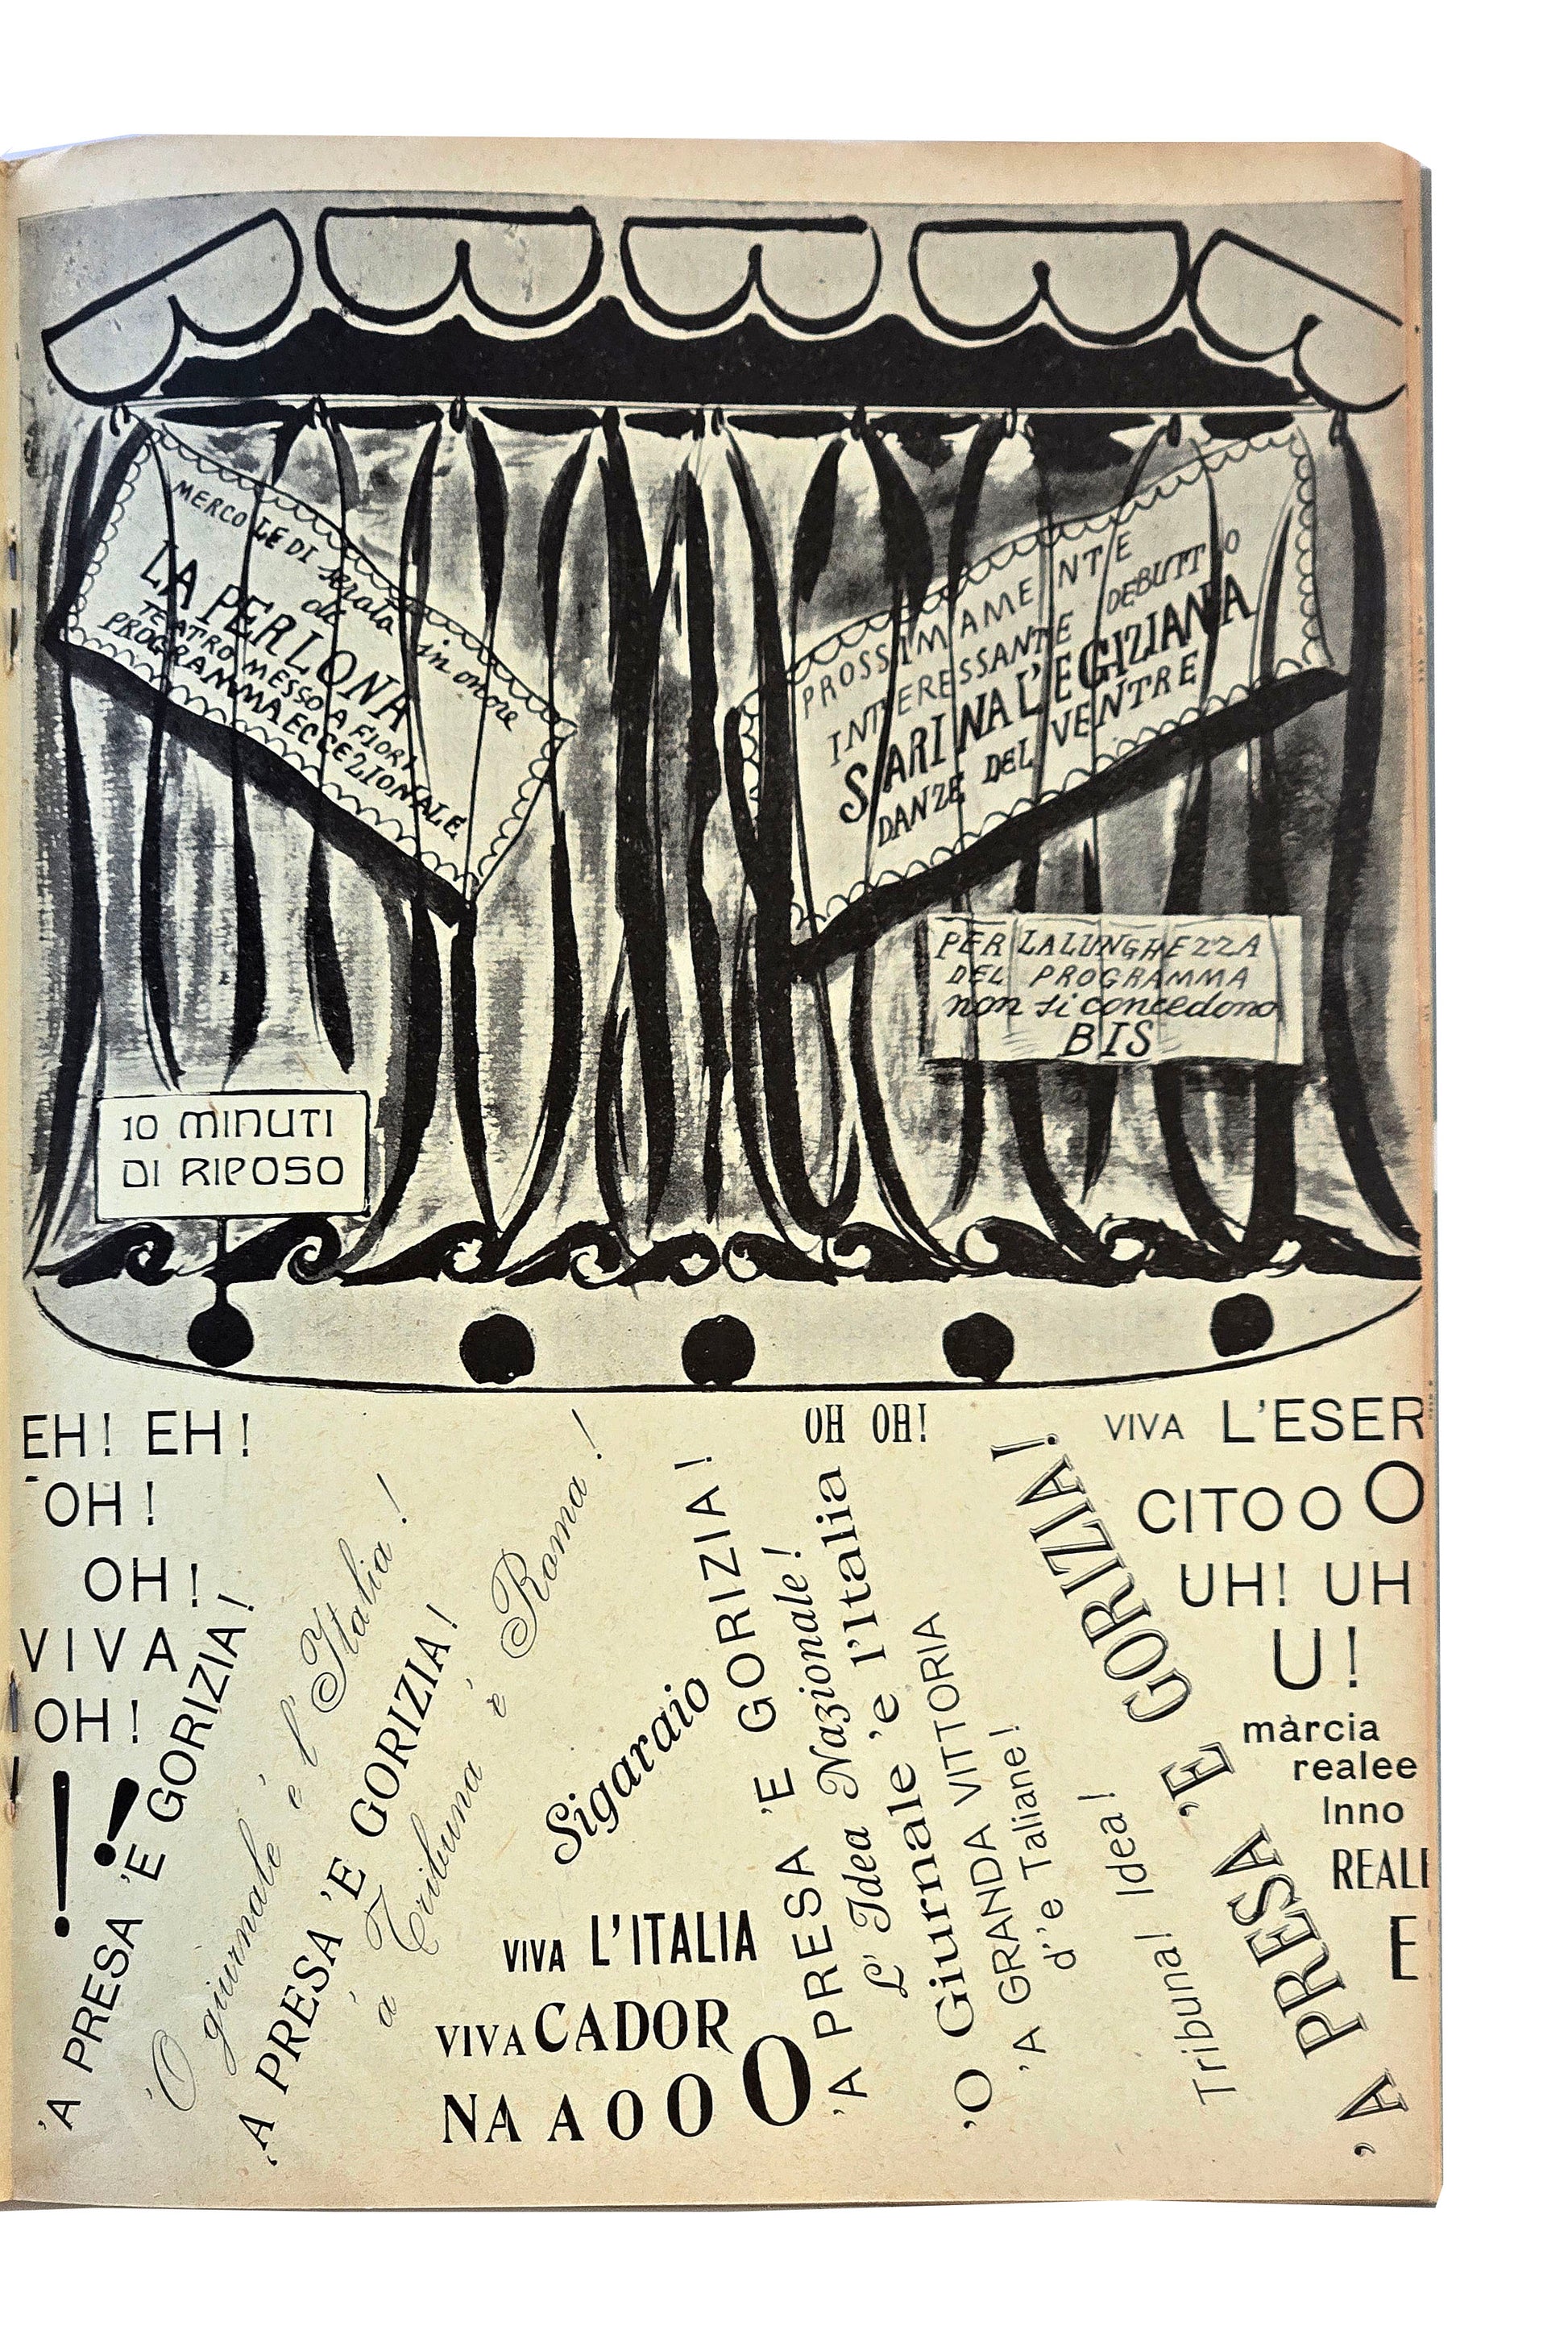 MERCOLEDI serata
in onore
de
LA PERLONA
TEATRO MESSO A FIORI
PROGRAMMA ECCEZIONALE
PROSSIMAMENTE
INTERESSANTE DEBUTTO
SARINA L'EGIZIANA
DANZE DEL VENTRE
PER LA LUNGHEZZA
DEL PROGRAMMA
non si concedono
BIS
10 MINUTI
DI RIPOSO
EH! EH!
OH!
OH!
VIVA
OH!
!!
'A PRESA 'E GORIZIA!
'O giurnale è l' Italia!
'A PRESA 'E GORIZIA!
à Tribuna è Roma!
Sigaraio
VIVA L'ITALIA
VIVA CADOR
NA A O O O
'A PRESA 'E GORIZIA!
L' Idea Nazionale!
'O Giurnale 'e l'Italia
UH OH!
'A GRANDA VITTORIA
d''e Taliane!
Tribuna! Idea!
'A PRESA 'E GORIZIA!
VIVA L'ESER
CITO O O
UH! UH
U!
màrcia
realee
Inno
REALE
E